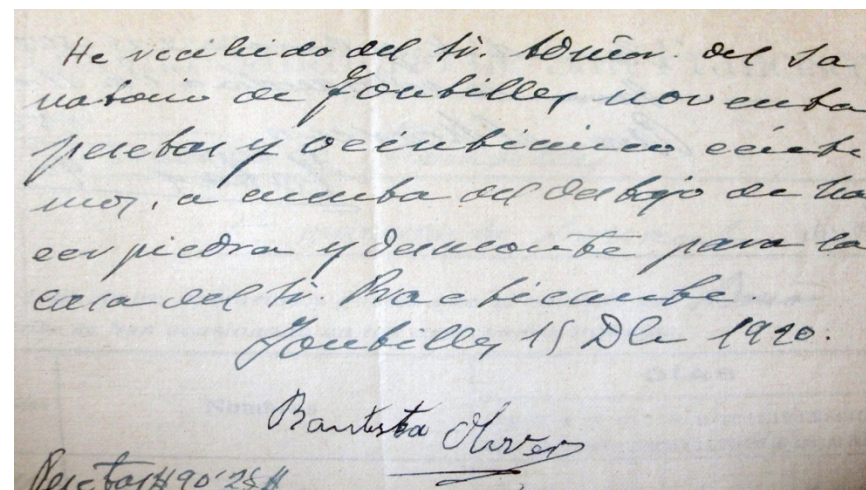 He recibido del Sr. Admor. del Sa
natorio de Fontilles noventa
pesetas y veinticinco cénti
mos, a cuenta del destajo de ha
cer piedra y desmonte para la
casa del Sr. Practicante
Fontilles 15 Dbe 1920.
Bautista Oliver
Pesetas #90'25#